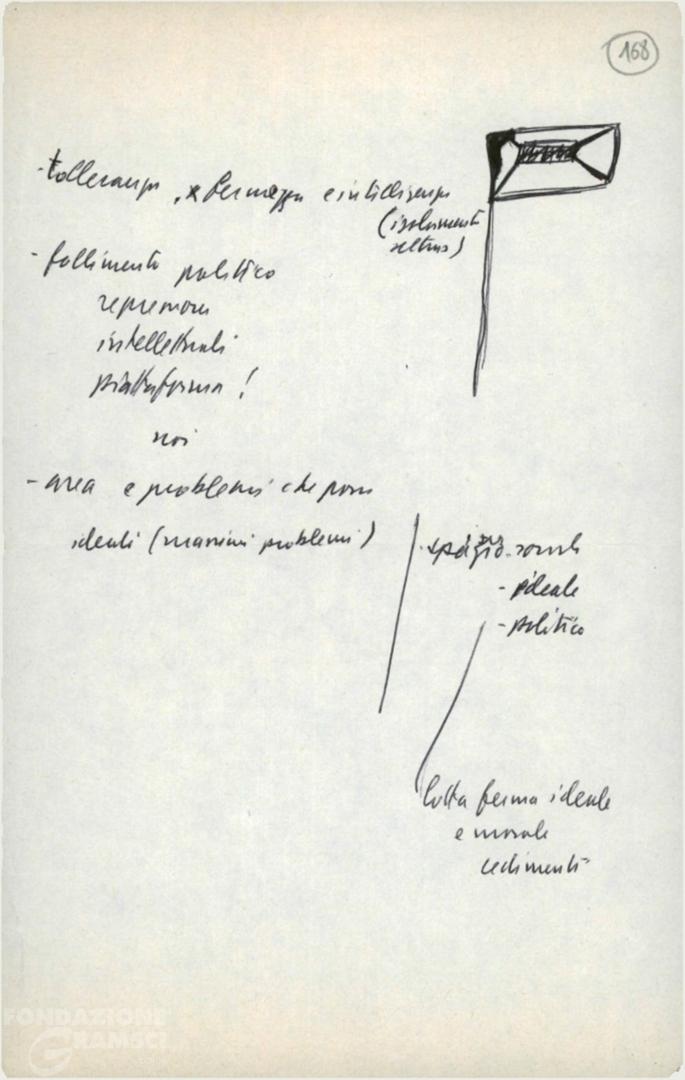 168
- tolleranza, x fermezza e intelligenza
(isolamenti
- fallimento politico
repressione
intellettuali
piattaforma!
noi
- area e problemi che pone
ideali (massimi problemi)
- spazio
- ideale
- politico
lotta ferma ideale
e morale
cedimenti
FONDAZIONE
GRAMSCI